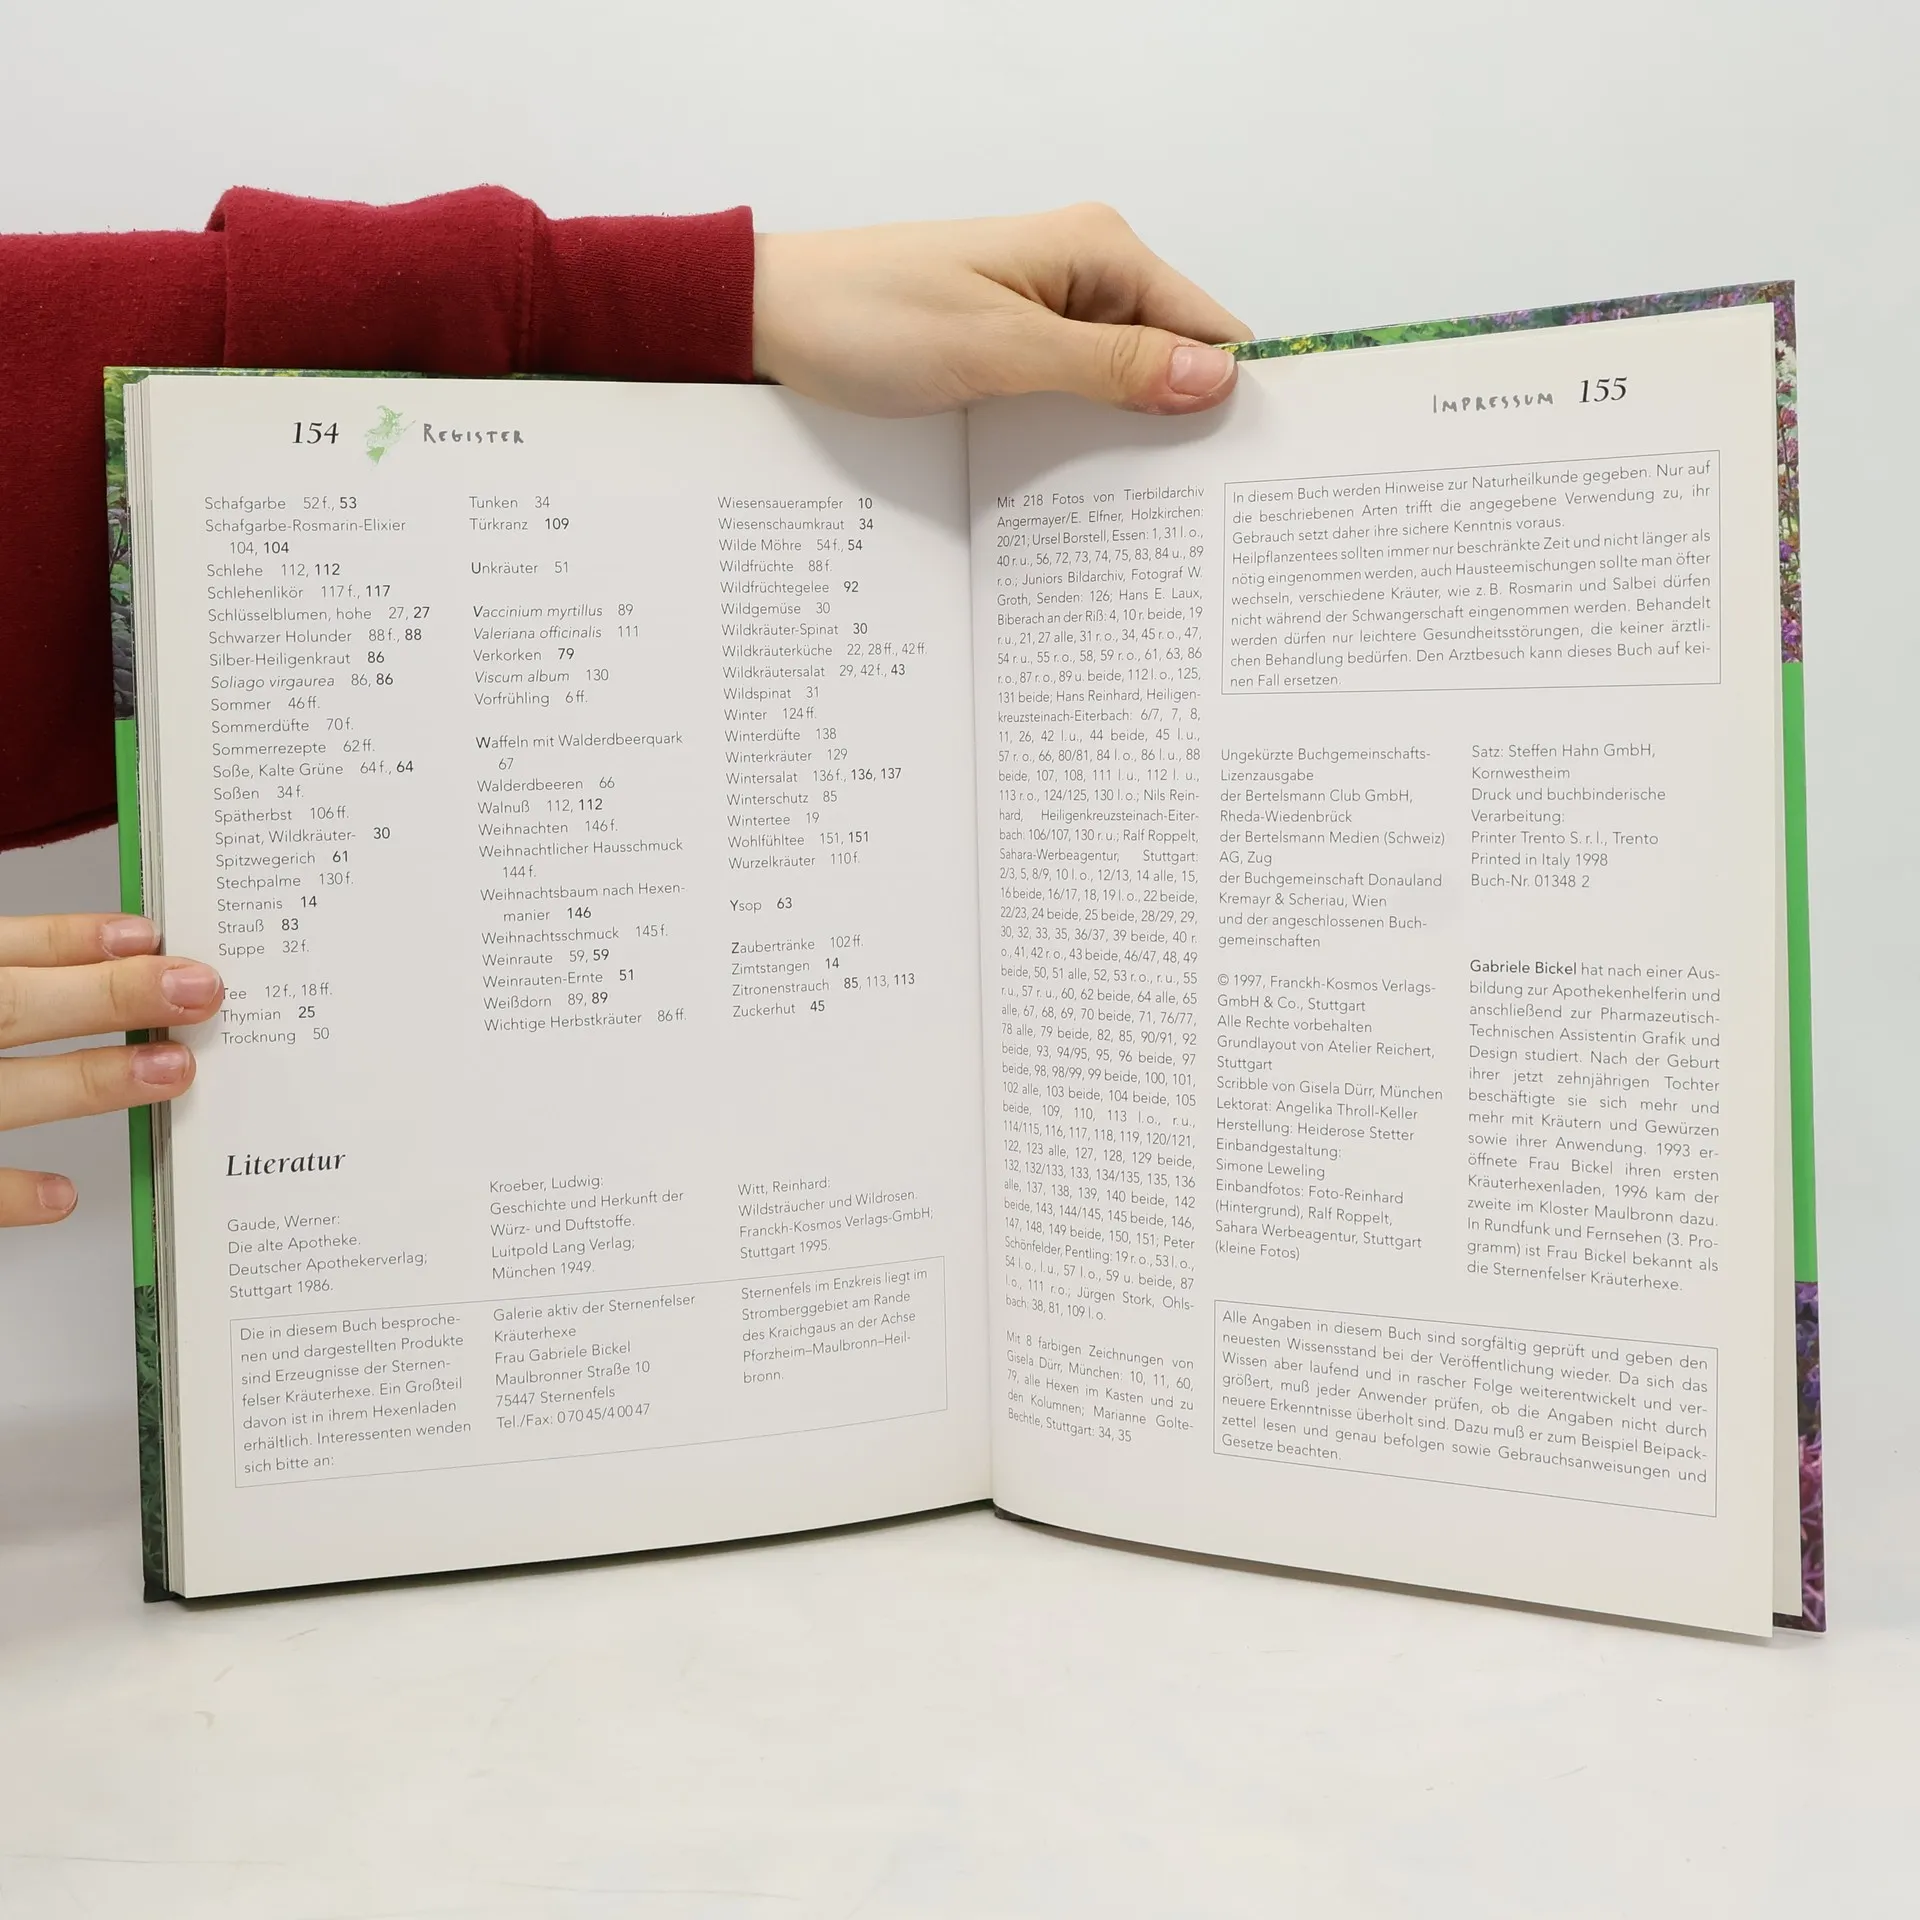 154 REGISTER
Schafgarbe 52f., 53
Schafgarbe-Rosmarin-Elixier
104, 104
Schlehe 112, 112
Schlehenlikör 117f., 117
Schlüsselblumen, hohe 27, 27
Schwarzer Holunder 88f., 88
Silber-Heiligenkraut 86
Soliago virgaurea 86, 86
Sommer 46ff.
Sommerdüfte 70f.
Sommerrezepte 62ff.
Soße, Kalte Grüne 64f., 64
Soßen 34f.
Spätherbst 106ff.
Spinat, Wildkräuter- 30
Spitzwegerich 61
Stechpalme 130f.
Sternanis 14
Strauß 83
Suppe 32f.
Tee 12f., 18ff.
Thymian 25
Trocknung 50
Tunken 34
Türkranz 109
Unkräuter 51
Vaccinium myrtillus 89
Valeriana officinalis 111
Verkorken 79
Viscum album 130
Vorfrühling 6ff.
Waffeln mit Walderdbeerquark
67
Walderdbeeren 66
Walnuß 112, 112
Weihnachten 146f.
Weihnachtlicher Hausschmuck
144f.
Weihnachtsbaum nach Hexen-
manier 146
Weihnachtsschmuck 145f.
Weinraute 59, 59
Weinrauten-Ernte 51
Weißdorn 89, 89
Wichtige Herbstkräuter 86ff.
Wiesensauerampfer 10
Wiesenschaumkraut 34
Wilde Möhre 54f., 54
Wildfrüchte 88f.
Wildfrüchtegelee 92
Wildgemüse 30
Wildkräuter-Spinat 30
Wildkräuterküche 22, 28ff., 42ff.
Wildkräutersalat 29, 42f., 43
Wildspinat 31
Winter 124ff.
Winterdüfte 138
Winterkräuter 129
Wintersalat 136f., 136, 137
Winterschutz 85
Wintertee 19
Wohlfühltee 151, 151
Wurzelkräuter 110f.
Ysop 63
Zaubertränke 102ff.
Zimtstangen 14
Zitronenstrauch 85, 113, 113
Zuckerhut 45
Literatur
Gaude, Werner:
Die alte Apotheke.
Deutscher Apothekerverlag;
Stuttgart 1986.
Kroeber, Ludwig:
Geschichte und Herkunft der
Würz- und Duftstoffe.
Luitpold Lang Verlag;
München 1949.
Witt, Reinhard:
Wildsträucher und Wildrosen.
Franckh-Kosmos Verlags-GmbH;
Stuttgart 1995.
Die in diesem Buch besproche-
nen und dargestellten Produkte
sind Erzeugnisse der Sternen-
felser Kräuterhexe. Ein Großteil
davon ist in ihrem Hexenladen
erhältlich. Interessenten wenden
sich bitte an:
Galerie aktiv der Sternenfelser
Kräuterhexe
Frau Gabriele Bickel
Maulbronner Straße 10
75447 Sternenfels
Tel./Fax: 07045/40047
Sternenfels im Enzkreis liegt im
Stromberggebiet am Rande
des Kraichgaus an der Achse
Pforzheim–Maulbronn–Heil-
bronn.
IMPRESSUM 155
Mit 218 Fotos von Tierbildarchiv
Angermayer/E. Elfner, Holzkirchen:
20/21; Ursel Borstell, Essen: 1, 31 l.o.,
40 r.u., 56, 72, 73, 74, 75, 83, 84 u., 89
r.o.; Juniors Bildarchiv, Fotograf W.
Groth, Senden: 126; Hans E. Laux,
Biberach an der Riß: 4, 10 r. beide, 19
r.u., 21, 27 alle, 31 r.o., 34, 45 r.o., 47,
54 r.u., 55 r.o., 58, 59 r.o., 61, 63, 86
r.o., 87 r.o., 89 u. beide, 112 l.o., 125,
131 beide; Hans Reinhard, Heiligen-
kreuzsteinach-Eiterbach: 6/7, 7, 8,
11, 26, 42 l.u., 44 beide, 45 l.u.,
57 r.o., 66, 80/81, 84 l.o., 86 l.u., 88
beide, 107, 108, 111 l.u., 112 l.u.,
113 r.o., 124/125, 130 l.o.; Nils Rein-
hard, Heiligenkreuzsteinach-Eiter-
bach: 106/107, 130 r.u.; Ralf Roppelt,
Sahara-Werbeagentur, Stuttgart:
2/3, 5, 8/9, 10 l.o., 12/13, 14 alle, 15,
16 beide, 16/17, 18, 19 l.o., 22 beide,
22/23, 24 beide, 25 beide, 28/29, 29,
30, 32, 33, 35, 36/37, 39 beide, 40 r.
o., 41, 42 r.o., 43 beide, 46/47, 48, 49
beide, 50, 51 alle, 52, 53 r.o., r.u., 55
r.u., 57 r.u., 60, 62 beide, 64 alle, 65
alle, 67, 68, 69, 70 beide, 71, 76/77,
78 alle, 79 beide, 82, 85, 90/91, 92
beide, 93, 94/95, 95, 96 beide, 97
beide, 98, 98/99, 99 beide, 100, 101,
102 alle, 103 beide, 104 beide, 105
beide, 109, 110, 113 l.o., r.u.,
114/115, 116, 117, 118, 119, 120/121,
122, 123 alle, 127, 128, 129 beide,
132, 132/133, 133, 134/135, 135, 136
alle, 137, 138, 139, 140 beide, 142
beide, 143, 144/145, 145 beide, 146,
147, 148, 149 beide, 150, 151; Peter
Schönfelder, Pentling: 19 r.o., 53 l.o.,
54 l.o., l.u., 57 l.o., 59 u. beide, 87
l.o., 111 r.o.; Jürgen Stork, Ohls-
bach: 38, 81, 109 l.o.
Mit 8 farbigen Zeichnungen von
Gisela Dürr, München: 10, 11, 60,
79, alle Hexen im Kasten und zu
den Kolumnen; Marianne Golte-
Bechtle, Stuttgart: 34, 35
In diesem Buch werden Hinweise zur Naturheilkunde gegeben. Nur auf
die beschriebenen Arten trifft die angegebene Verwendung zu, ihr
Gebrauch setzt daher ihre sichere Kenntnis voraus.
Heilpflanzentees sollten immer nur beschränkte Zeit und nicht länger als
nötig eingenommen werden, auch Hausteemischungen sollte man öfter
wechseln, verschiedene Kräuter, wie z.B. Rosmarin und Salbei dürfen
nicht während der Schwangerschaft eingenommen werden. Behandelt
werden dürfen nur leichtere Gesundheitsstörungen, die keiner ärztli-
chen Behandlung bedürfen. Den Arztbesuch kann dieses Buch auf kei-
nen Fall ersetzen.
Ungekürzte Buchgemeinschafts-
Lizenzausgabe
der Bertelsmann Club GmbH,
Rheda-Wiedenbrück
der Bertelsmann Medien (Schweiz)
AG, Zug
der Buchgemeinschaft Donauland
Kremayr & Scheriau, Wien
und der angeschlossenen Buch-
gemeinschaften
© 1997, Franckh-Kosmos Verlags-
GmbH & Co., Stuttgart
Alle Rechte vorbehalten
Grundlayout von Atelier Reichert,
Stuttgart
Scribble von Gisela Dürr, München
Lektorat: Angelika Throll-Keller
Herstellung: Heiderose Stetter
Einbandgestaltung:
Simone Leweling
Einbandfotos: Foto-Reinhard
(Hintergrund), Ralf Roppelt,
Sahara Werbeagentur, Stuttgart
(kleine Fotos)
Satz: Steffen Hahn GmbH,
Kornwestheim
Druck und buchbinderische
Verarbeitung:
Printer Trento S.r.l., Trento
Printed in Italy 1998
Buch-Nr. 01348 2
Gabriele Bickel hat nach einer Aus-
bildung zur Apothekenhelferin und
anschließend zur Pharmazeutisch-
Technischen Assistentin Grafik und
Design studiert. Nach der Geburt
ihrer jetzt zehnjährigen Tochter
beschäftigte sie sich mehr und
mehr mit Kräutern und Gewürzen
sowie ihrer Anwendung. 1993 er-
öffnete Frau Bickel ihren ersten
Kräuterhexenladen, 1996 kam der
zweite im Kloster Maulbronn dazu.
In Rundfunk und Fernsehen (3. Pro-
gramm) ist Frau Bickel bekannt als
die Sternenfelser Kräuterhexe.
Alle Angaben in diesem Buch sind sorgfältig geprüft und geben den
neuesten Wissensstand bei der Veröffentlichung wieder. Da sich das
Wissen aber laufend und in rascher Folge weiterentwickelt und ver-
größert, muß jeder Anwender prüfen, ob die Angaben nicht durch
neuere Erkenntnisse überholt sind. Dazu muß er zum Beispiel Beipack-
zettel lesen und genau befolgen sowie Gebrauchsanweisungen und
Gesetze beachten.